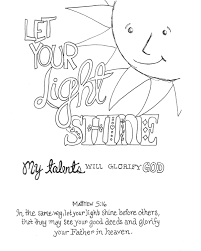 LET
YOUR
Light
SHINE
My talents WILL GLORIFY GOD
MATTHEW 5:16
In the same way, let your light shine before others,
that they may see your good deeds and glorify
your Father in heaven.